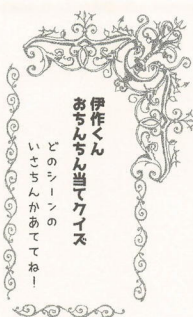 伊作くん
おちんちん当てクイズ
どのシーンの
いさちんかあててね！